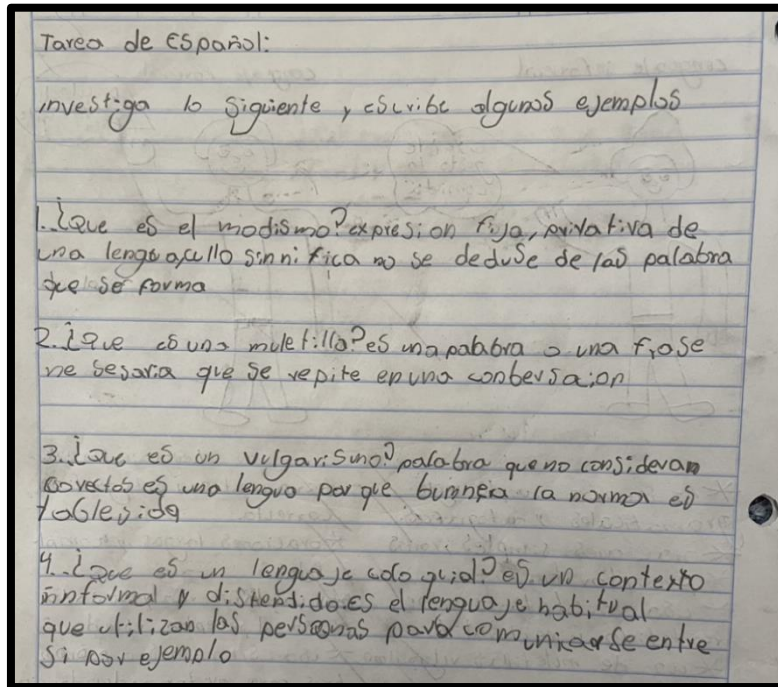 Tarea de Español:
investiga lo siguiente y escribe algunos ejemplos
1. ¿Que es el modismo? expresion fija, privativa de
una lengua, cullo sinnifica no se deduse de las palabra
que se forma
2. ¿Que es una muletilla? es una palabra o una frase
ne sesaria que se repite en una conbersaion
3. ¿Que es un vulgarismo? palabra que no consideran
corectos es una lenguo por que la norma es
tableside
4. ¿Que es un lenguaje colo quial? es un contexto
informal y distendido. es el lenguaje habitual
que utilizan las personas para comunicarse entre
si por ejemplo